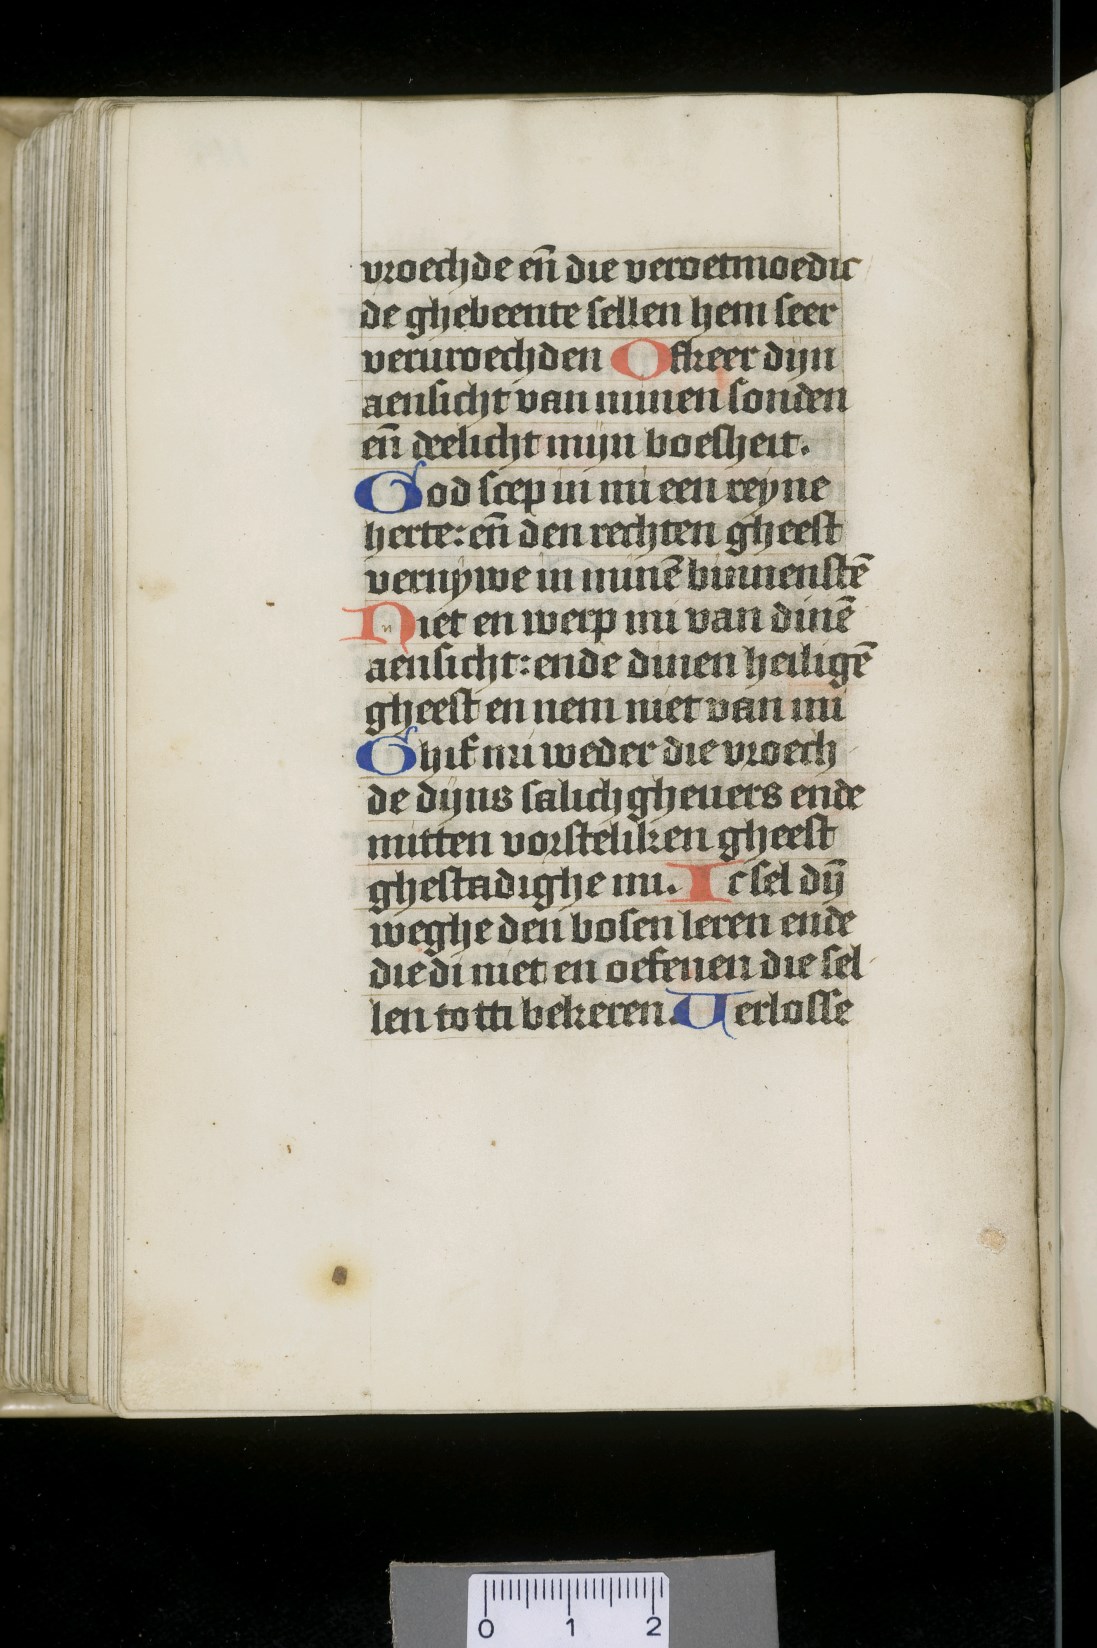 vroechde eñ die veroetmoedic
de ghebeente sellen hem seer
veruroechden Ofkeer dijn
aensicht van minen sonden
eñ deelicht mijn boesheit.
God scep in mi een reyne
herte: eñ den rechten gheest
vernywe in minē binnenstē
Niet en werp mi van dinē
aensicht: ende dinen heiligē
gheest en nem niet van mi
Ghif mi weder die vroech
de dijns salichgheuers ende
mitten vorsteliken gheest
ghestadighe mi. Ic sel dȳ
weghe den bosen leren ende
die di niet en oefenen die sel
len totti bekeren. Verlosse
0 1 2